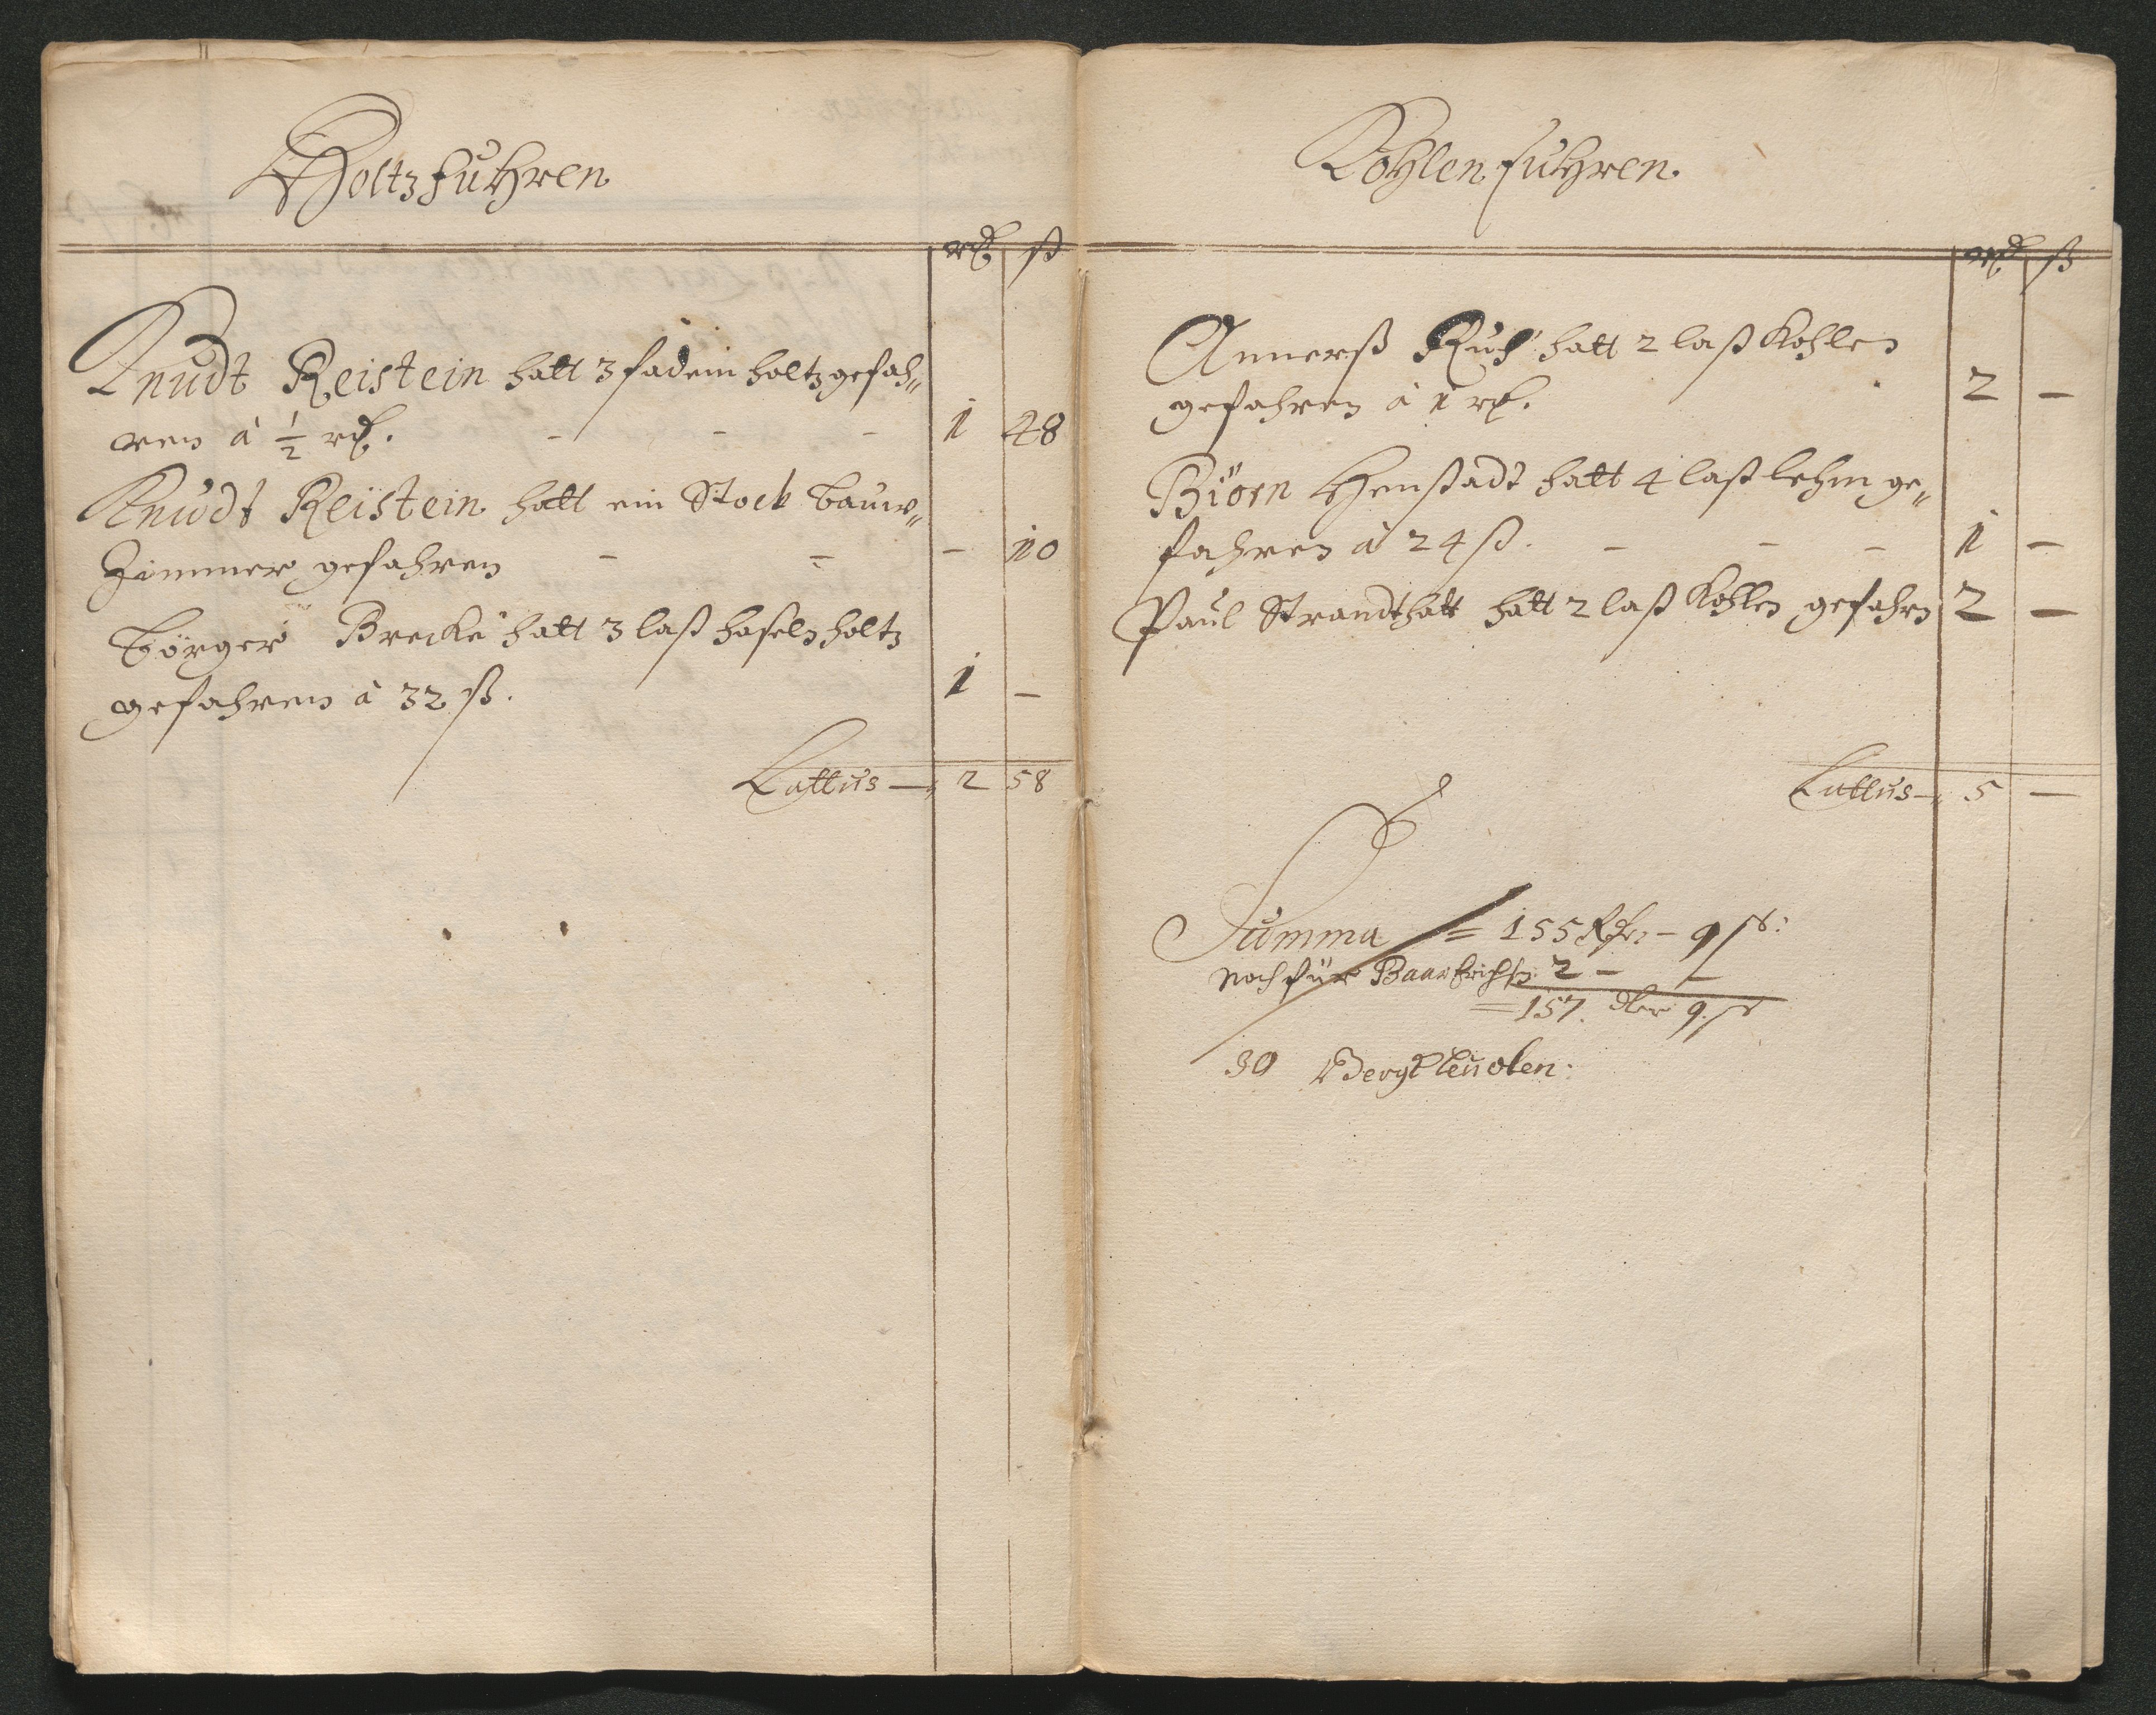 Holtz fuhren
rd ß
Knudt Reistein hatt 3 fadem holtz gefah„
ren â 1/2 rd. - - - 1 48
Knudt Reistein hatt ein Stock bauw„
Zimmer gefahren - - - 10
Börger Brecke hatt 3 laß haseln holtz
gefahren â 32 ß. 1 -
Lattus - 2 58
Kohlen fuhren.
rd ß
Annerß Ruh hatt 2 laß Kohlen
gefahren â 1 rd. 2 -
Biörn Henstadt hatt 4 laß lehm ge„
fahren â 24 ß. - - - 1 -
Paul Strandt hatt 2 laß Kohlen gefahrn 2 -
Lattus - 5 -
Summa = 155 - 9 ß:
noch für 2 - -
= 157. dler 9. ß
30 Bergk leuten: